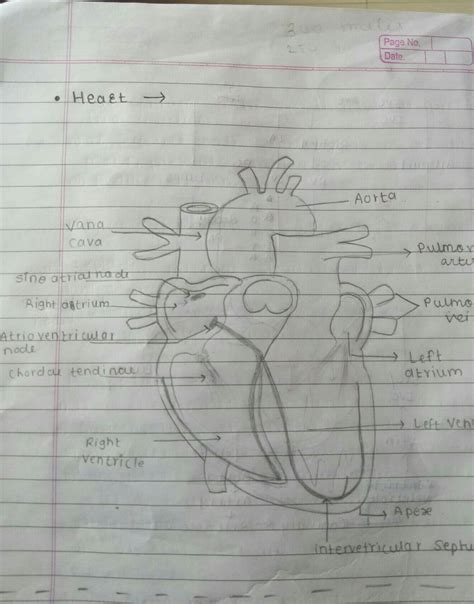 Page No.
Date.
• Heart →
Aorta
Vana
cava
Pulmo
Sino atrial node
Right atrium
Pulmo
vei
Atrio ventricular
node
Left
atrium
Chordae tendinae
Left ven
Right
ventricle
Apex
Intervetricular Septu